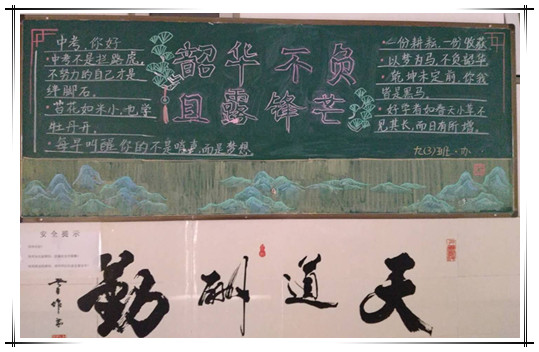 中考，你好
·中考不是拦路虎，
不努力的自己才是
绊脚石。
·苔花如米小，也学
牡丹开。
·每早叫醒你的不是闹钟，而是梦想
韶华不负
且露锋芒
·一份耕耘，一份收获
·以梦为马，不负韶华
·乾坤未定前，你我
皆是黑马。
·好学者如春天小草不
见其长，而日有所增。
九(3)班·办
安全提示
天道酬勤